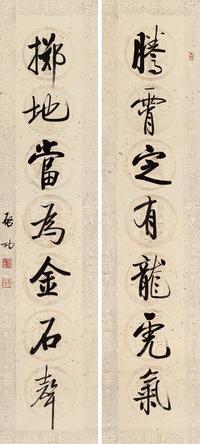 騰霄定有龍虎氣
擲地當為金石聲
啟功